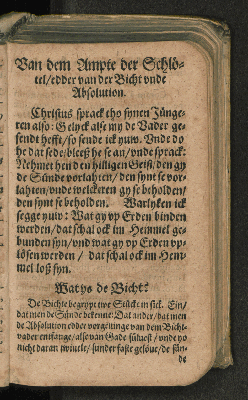 Van dem Ampte der Schlö-
tel/edder van der Bicht vnde
Absolution.
Christus sprack tho synen Jünge-
ren also: Gelyck alse my de Vader ge-
sendt hefft/so sende ick yuw. Vnde do
he dat sede/bleeß he se an/vnde sprack:
Nehmet hen den hilligen Geist/den gy
de Sünde vorlathen/den synt se vor-
lathen/vnde welckeren gy se beholden/
den synt se beholden. Warlyken ick
segge yuw: Wat gy vp Erden binden
werden/dat schal ock im Hemmel ge-
bunden syn/vnd wat gy vp Erden vp-
lösen werden / dat schal ock im Hem-
mel loß syn.
Wat ys de Bicht?
De Bichte begrypt twe Stücke in sick. Ein/
dat men de Sünde bekenne: Dat ander/dat men
de Absolution edder vorgevinge van dem Bicht-
vader entfange/alse van Gade sülvest/vnde yo
nicht daran twivele/sunder faste gelöve/de sün-
de